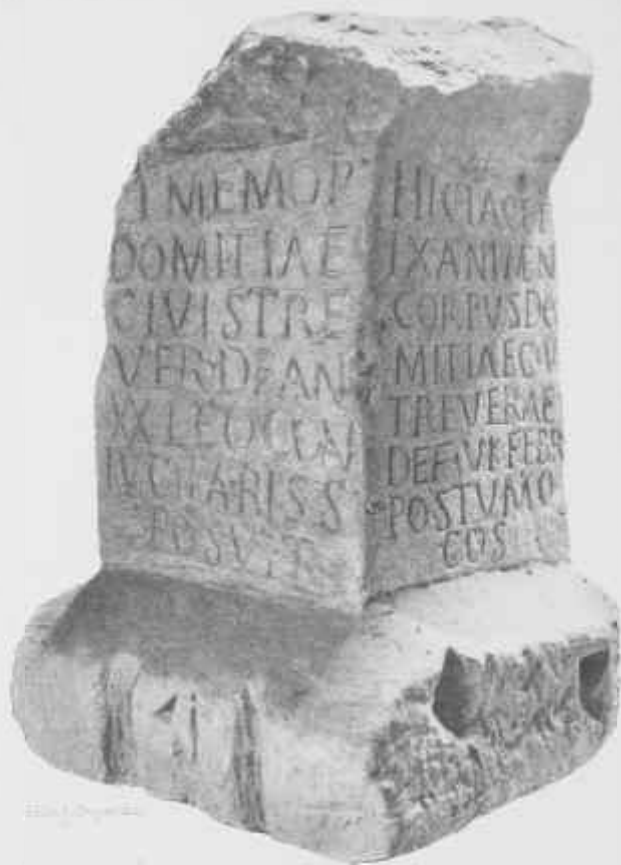 MEMOR
DOMITIAE
CIVIS TRE
VER D AN
XX LEO CON
IVG KARISS
POSVIT
HIC IACET
IXANIMEN
CORPVS DO
MITIAE CIV
TREVERAE
DEF V K FEBR
POSTVMO
COS